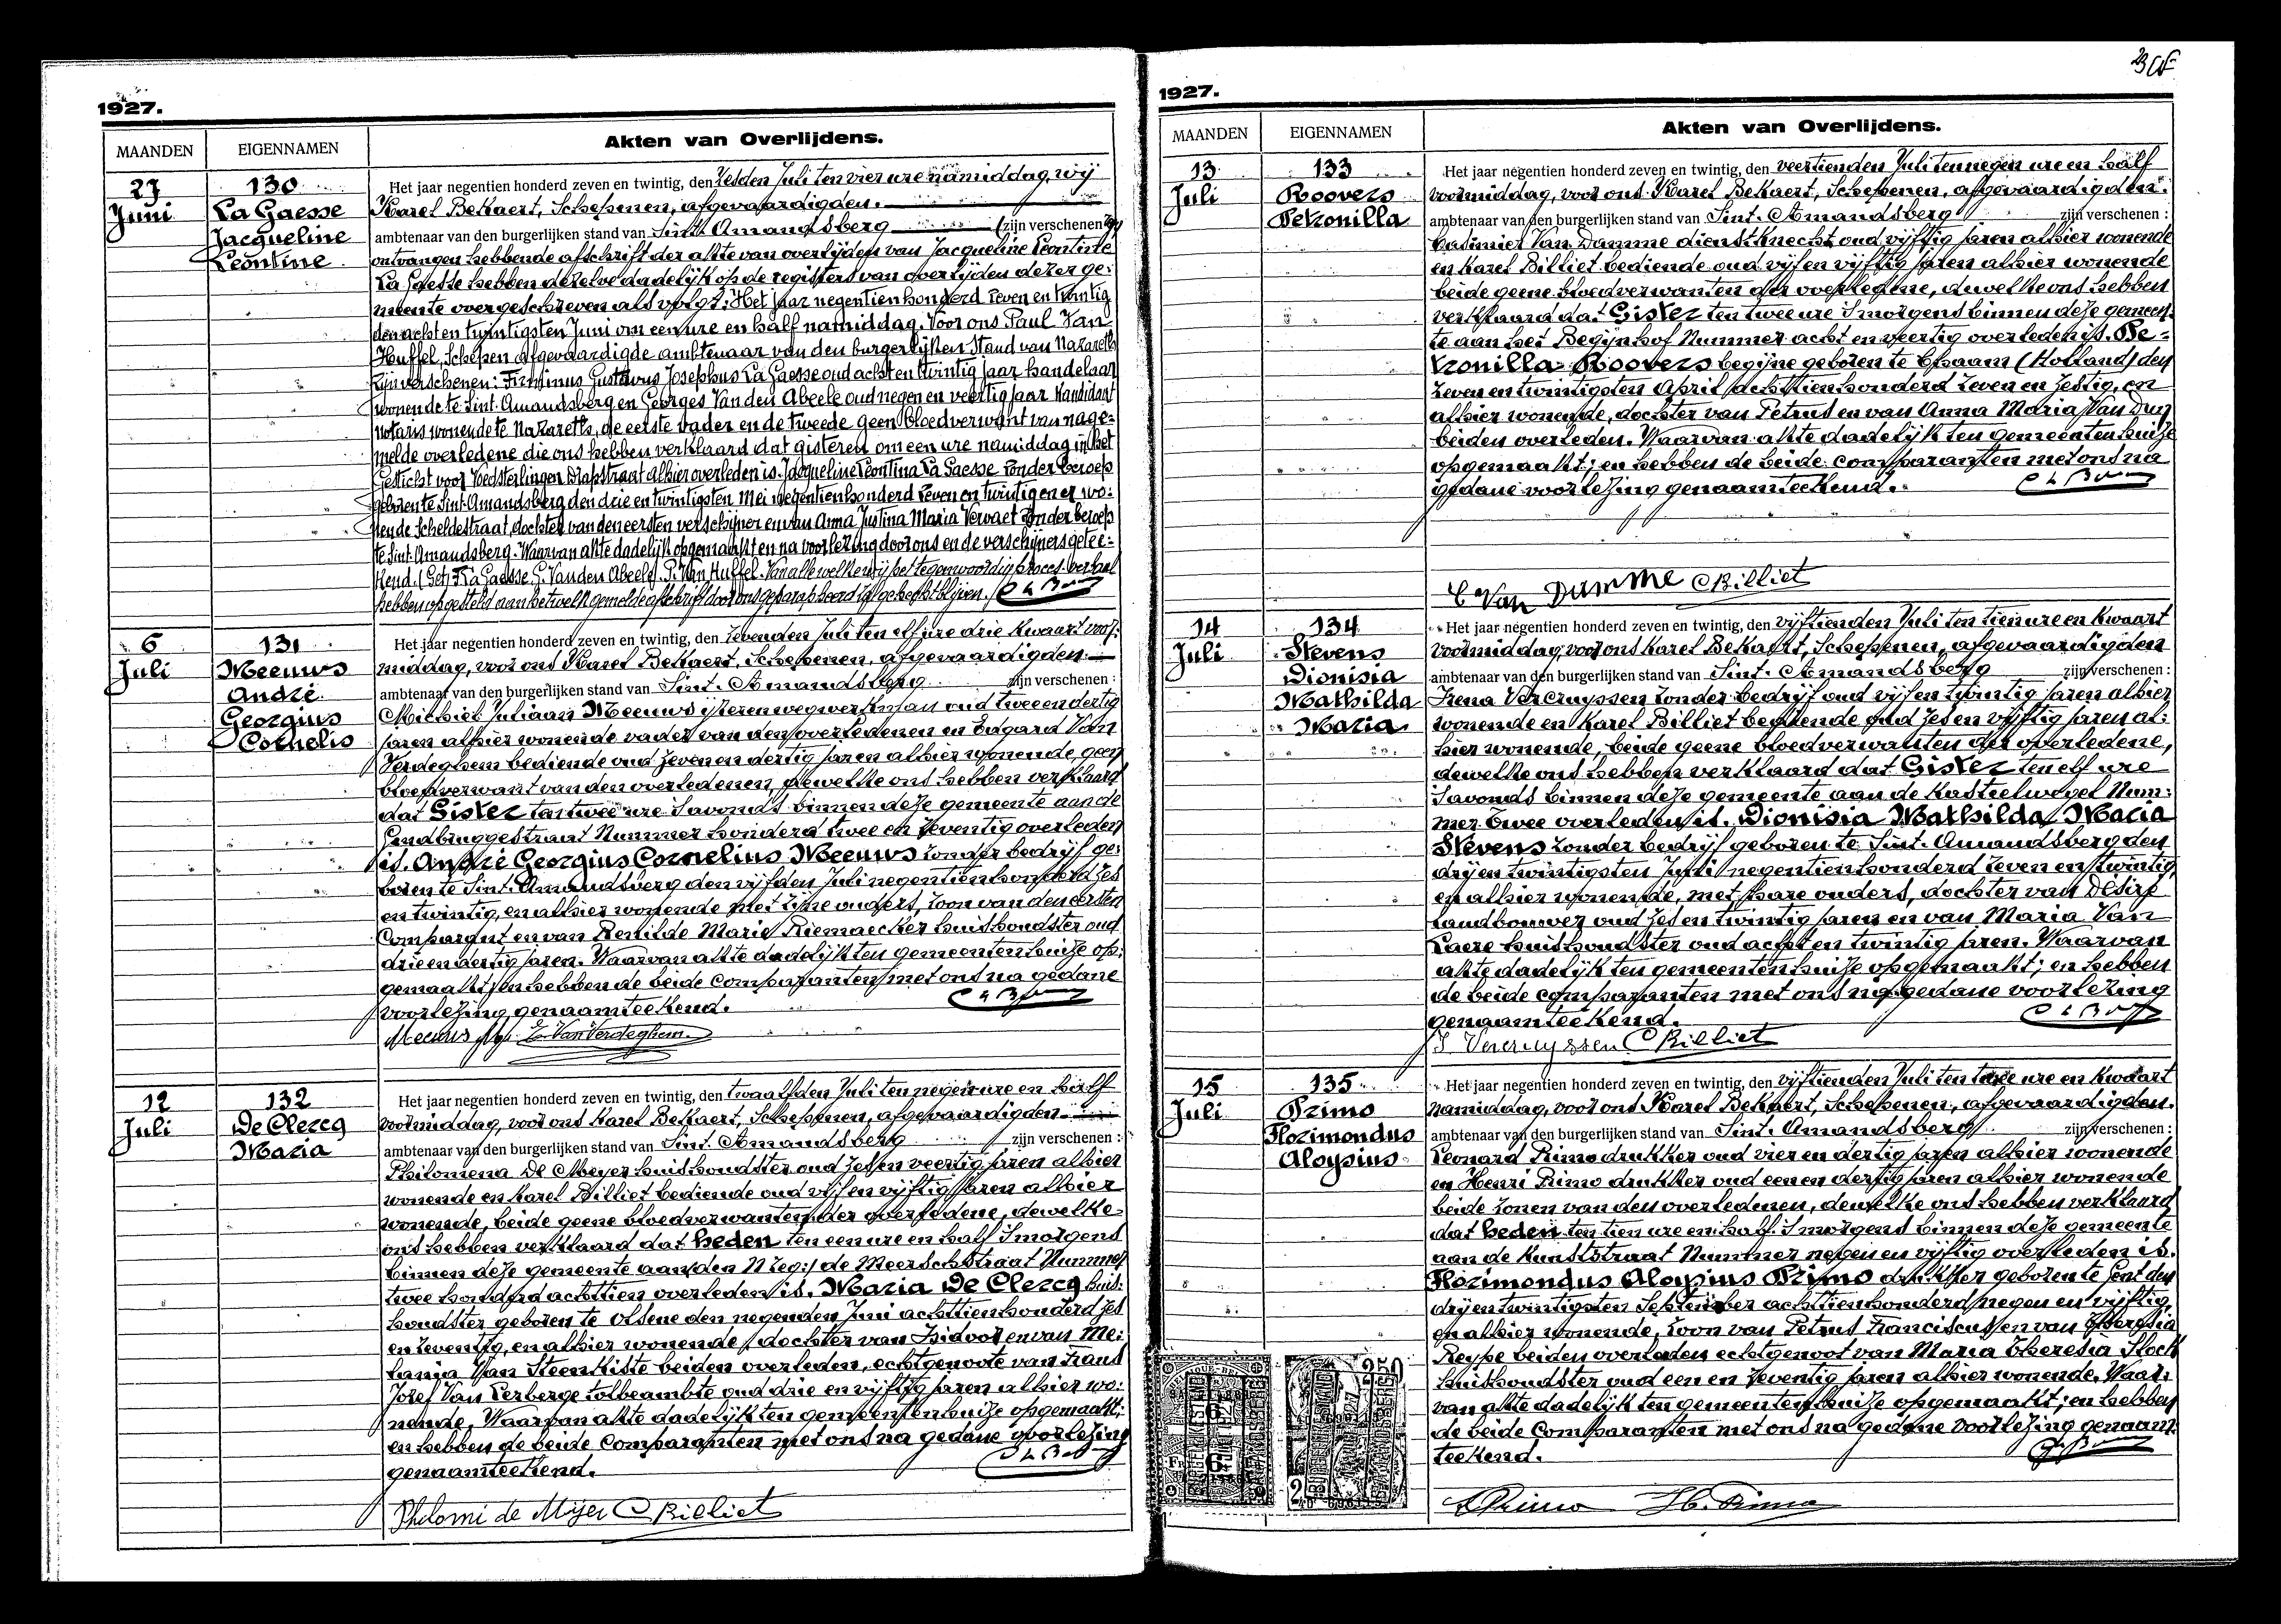 1927.
MAANDEN
EIGENNAMEN
Akten van Overlijdens.
27
Juni
130
La Gaesse
Jacqueline
Leontine
Het jaar negentien honderd zeven en twintig, den zesden Juli ten vier ure namiddag, wij
Karel BeKaert, Schepenen, afgevaardigden.
ambtenaar van den burgerlijken stand van Sint. Amandsberg (zijn verschenen
ontvangen hebbende afschrift der akte van overlijden van Jacqueline Leontine
La Gaesse hebben dezelve dadelijk op de registers van overlijden dezer ge:
meente overgeschreven als volgt: Het jaar negentien honderd zeven en twintig
den acht en twintigsten Juni om een ure en half namiddag. Voor ons Paul Van
Huffel Schepen afgevaardigde ambtenaar van den burgerlijken Stand van Nazareth
zijn verschenen: Firminus Gustavus Josephus La Gaesse oud acht en twintig jaar handelaar
wonende te Sint. Amandsberg en Georges Van den Abeele oud negen en veertig jaar Kandidaat
notaris wonende te Nazareth, de eerste vader en de tweede geen bloedverwant van nage:
melde overledene die ons hebben verklaard dat gisteren om een ure namiddag in het
Gesticht voor Voedsterlingen Drapstraat alhier overleden is. Jacqueline Leontina La Gaesse zonder beroep
geboren te Sint. Amandsberg den drie en twintigsten Mei negentien honderd zeven en twintig en er wo:
nende Scheldestraat, dochter van den eersten verschijner en van Anna Justina Maria Vervaet zonder beroep
te Sint. Amandsberg. Waarvan akte dadelijk opgemaakt en na voorlezing door ons en de verschijners getee:
kend. (Get) F. La Gaesse. G. Van den Abeele. P. Van Huffel. Van alle welke wij het tegenwoordig proces. verbaal
hebben opgesteld aan hetwelk gemelde afschrift door ons geparapheerd is gehecht blijven.
6
Juli
131
Meeuws
André
Georgius
Cornelis
Het jaar negentien honderd zeven en twintig, den zevenden Juli ten elf ure drie kwaart voor:
middag, voor ons Karel BeKaert, Schepenen, afgevaardigden
ambtenaar van den burgerlijken stand van Sint. Amandsberg zijn verschenen :
Michiel Juliaan Meeuws ijzerenwegwerkman oud twee en dertig
jaren alhier wonende vader van den overledenen en Edgard Van
Verdeghem bediende oud zeven en dertig jaren alhier wonende, geen
bloedverwant van den overledenen, dewelke ons hebben verklaard
dat Gister ten twee ure 's avonds binnen deze gemeente aan de
Gendbruggestraat Nummer honderd twee en zeventig overleden
is. André Georgius Cornelius Meeuws zonder bedrijf ge:
boren te Sint. Amandsberg den vijfden Juli negentien honderd zes
en twintig, en alhier wonende met zijne ouders, zoon van den eersten
Comparant en van Renilde Marie Riemaecker huishoudster oud
drie en dertig jaren. Waarvan akte dadelijk ten gemeentenhuize op:
gemaakt; en hebben de beide comparanten met ons na gedane
voorlezing genaamteekend.
Meeuws E. Van Verdeghem
12
Juli
132
De Clercq
Maria
Het jaar negentien honderd zeven en twintig, den twaalfden Juli ten negen ure en half
voormiddag, voor ons Karel BeKaert, Schepenen, afgevaardigden
ambtenaar van den burgerlijken stand van Sint. Amandsberg zijn verschenen :
Philomena De Meyer huishoudster oud zes en veertig jaren alhier
wonende en Karel Billiet bediende oud vijf en vijftig jaren alhier
wonende, beide geene bloedverwanten der overledene, dewelke
ons hebben verklaard dat heden ten een ure en half 's morgens
binnen deze gemeente aan de Meerschstraat Nummer
twee honderd achttien overleden is. Maria De Clercq huis:
houdster geboren te Olsene den negenden Juni achttien honderd zes
en zeventig, en alhier wonende, dochter van Isidoor en van Me:
lania Van Steenkiste beiden overleden, echtgenoote van Frans
Jozef Van Lerberge tolbeambte oud drie en vijftig jaren alhier wo:
nende. Waarvan akte dadelijk ten gemeentenhuize opgemaakt;
en hebben de beide comparanten met ons na gedane voorlezing
genaamteekend.
Philomi de Meyer C Billiet
1927.
MAANDEN
EIGENNAMEN
Akten van Overlijdens.
13
Juli
133
Roovers
Petronilla
Het jaar negentien honderd zeven en twintig, den veertienden Juli ten negen ure en half
voormiddag, voor ons Karel BeKaert, Schepenen, afgevaardigden.
ambtenaar van den burgerlijken stand van Sint. Amandsberg zijn verschenen :
Casimier Van Damme dienstknecht oud vijftig jaren alhier wonende
en Karel Billiet bediende oud vijf en vijftig jaren alhier wonende
beide geene bloedverwanten der overledene, dewelke ons hebben
verklaard dat Gister ten twee ure 's morgens binnen deze gemeen:
te aan het Begijnhof Nummer acht en veertig overleden is. Pe:
tronilla Roovers begijne geboren te Chaam (Holland) den
zeven en twintigsten April achttien honderd zeven en zestig, en
alhier wonende, dochter van Petrus en van Anna Maria Van Dun
beiden overleden. Waarvan akte dadelijk ten gemeentenhuize
opgemaakt; en hebben de beide comparanten met ons na
gedane voorlezing genaamteekend.
C Van Damme C Billiet
14
Juli
134
Stevens
Dionisia
Mathilda
Maria
Het jaar negentien honderd zeven en twintig, den vijftienden Juli ten tien ure en kwaart
voormiddag, voor ons Karel BeKaert, Schepenen, afgevaardigden
ambtenaar van den burgerlijken stand van Sint. Amandsberg zijn verschenen :
Irena Vercruyssen zonder bedrijf oud vijf en twintig jaren alhier
wonende en Karel Billiet bediende oud zes en vijftig jaren al:
hier wonende, beide geene bloedverwanten der overledene,
dewelke ons hebben verklaard dat Gister ten elf ure
's avonds binnen deze gemeente aan de Kasteelwegel Num:
mer twee overleden is. Dionisia Mathilda Maria
Stevens zonder bedrijf geboren te Sint. Amandsberg den
drij en twintigsten Juni negentien honderd zeven en twintig,
en alhier wonende, met hare ouders, dochter van Désiré
landbouwer oud zes en twintig jaren en van Maria Van
Laere huishoudster oud acht en twintig jaren. Waarvan
akte dadelijk ten gemeentenhuize opgemaakt; en hebben
de beide comparanten met ons na gedane voorlezing
genaamteekend.
I Vercruyssen C Billiet
15
Juli
135
Primo
Florimondus
Aloysius
Het jaar negentien honderd zeven en twintig, den vijftienden Juli ten twee ure en kwaart
namiddag, voor ons Karel BeKaert, Schepenen, afgevaardigden.
ambtenaar van den burgerlijken stand van Sint. Amandsberg zijn verschenen :
Leonard Primo drukker oud vier en dertig jaren alhier wonende
en Henri Primo drukker oud een en dertig jaren alhier wonende
beide zonen van den overledenen, dewelke ons hebben verklaard
dat heden ten tien ure en half 's morgens binnen deze gemeente
aan de Kunststraat Nummer negen en vijftig overleden is.
Florimondus Aloysius Primo drukker geboren te Gent den
drij en twintigsten September achttien honderd negen en vijftig,
en alhier wonende, zoon van Petrus Franciscus en van Theresia
Reype beiden overleden echtgenoot van Maria Theresia Stock
huishoudster oud een en zeventig jaren alhier wonende. Waar:
van akte dadelijk ten gemeentenhuize opgemaakt; en hebben
de beide Comparanten met ons na gedane voorlezing genaam:
teekend.
L Primo H. Primo